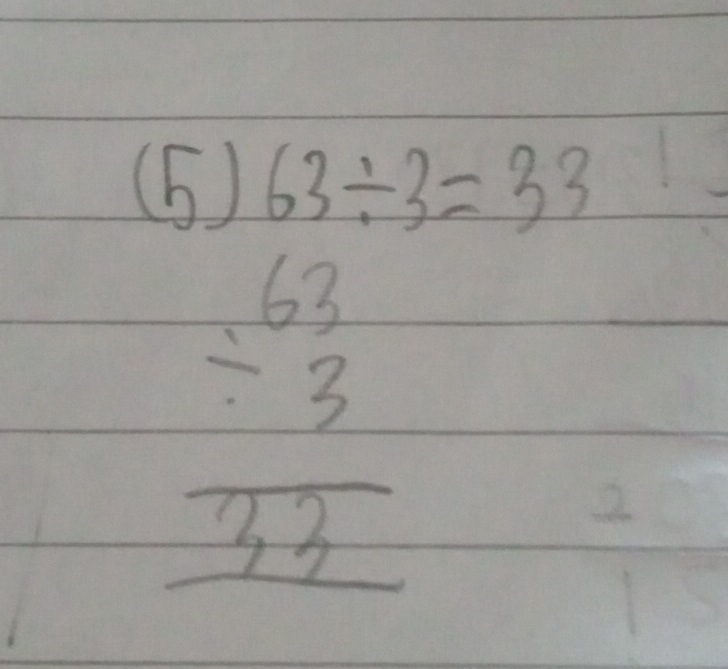 (5) 63÷3=33
63
÷ 3
33